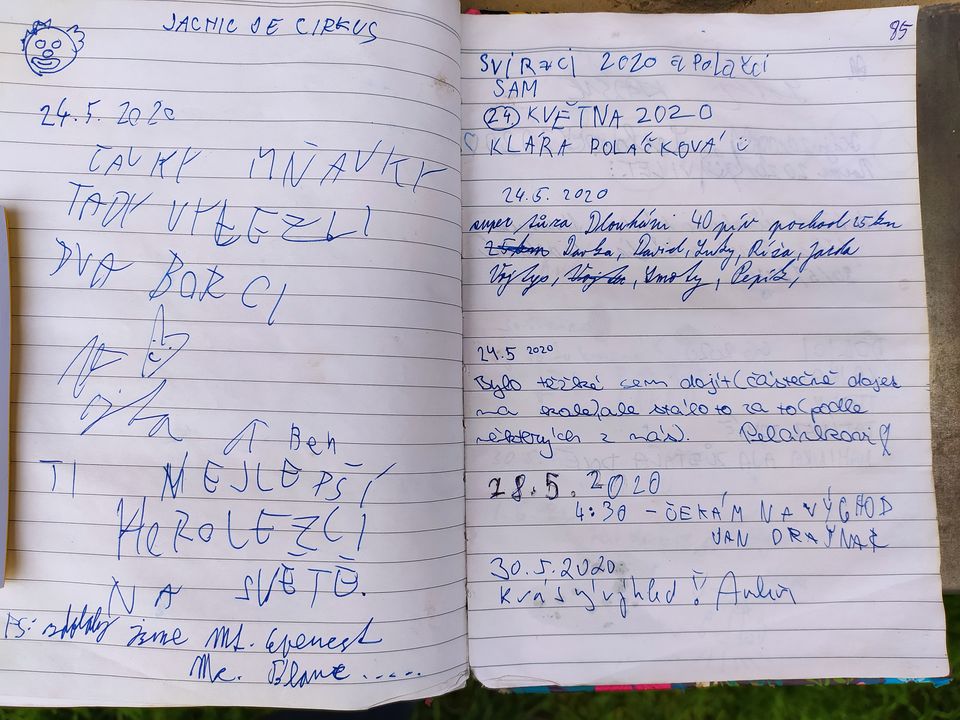 JACHIC JE CIRKUS
24.5. 2020
ČAVKY MŇAVKY
TADY VYLEZLI
DVA BORCI
Ben
TI NEJLEPŠÍ
HEROLEZCI
NA SVĚTĚ.
PS: zdolaly jsme Mt. Everest
Mc. Blanc .....
85
SVÍRACI 2020 a POLAČCI
SAM
24 KVĚTNA 2020
KLÁRA POLÁČKOVÁ
24.5. 2020
super túra Dlouhání 40 pív pochod 25 km
25km David, Luky, Ríža, Jarda
Smoky, Pepík,
24.5 2020
Bylo těžké sem dojít (částečně dojet
na kole), ale stálo to za to (podle
některých z nás).
28.5.2020
4:30 - ČEKÁM NA VÝCHOD
JAN
30.5.2020
Krásný výhled!